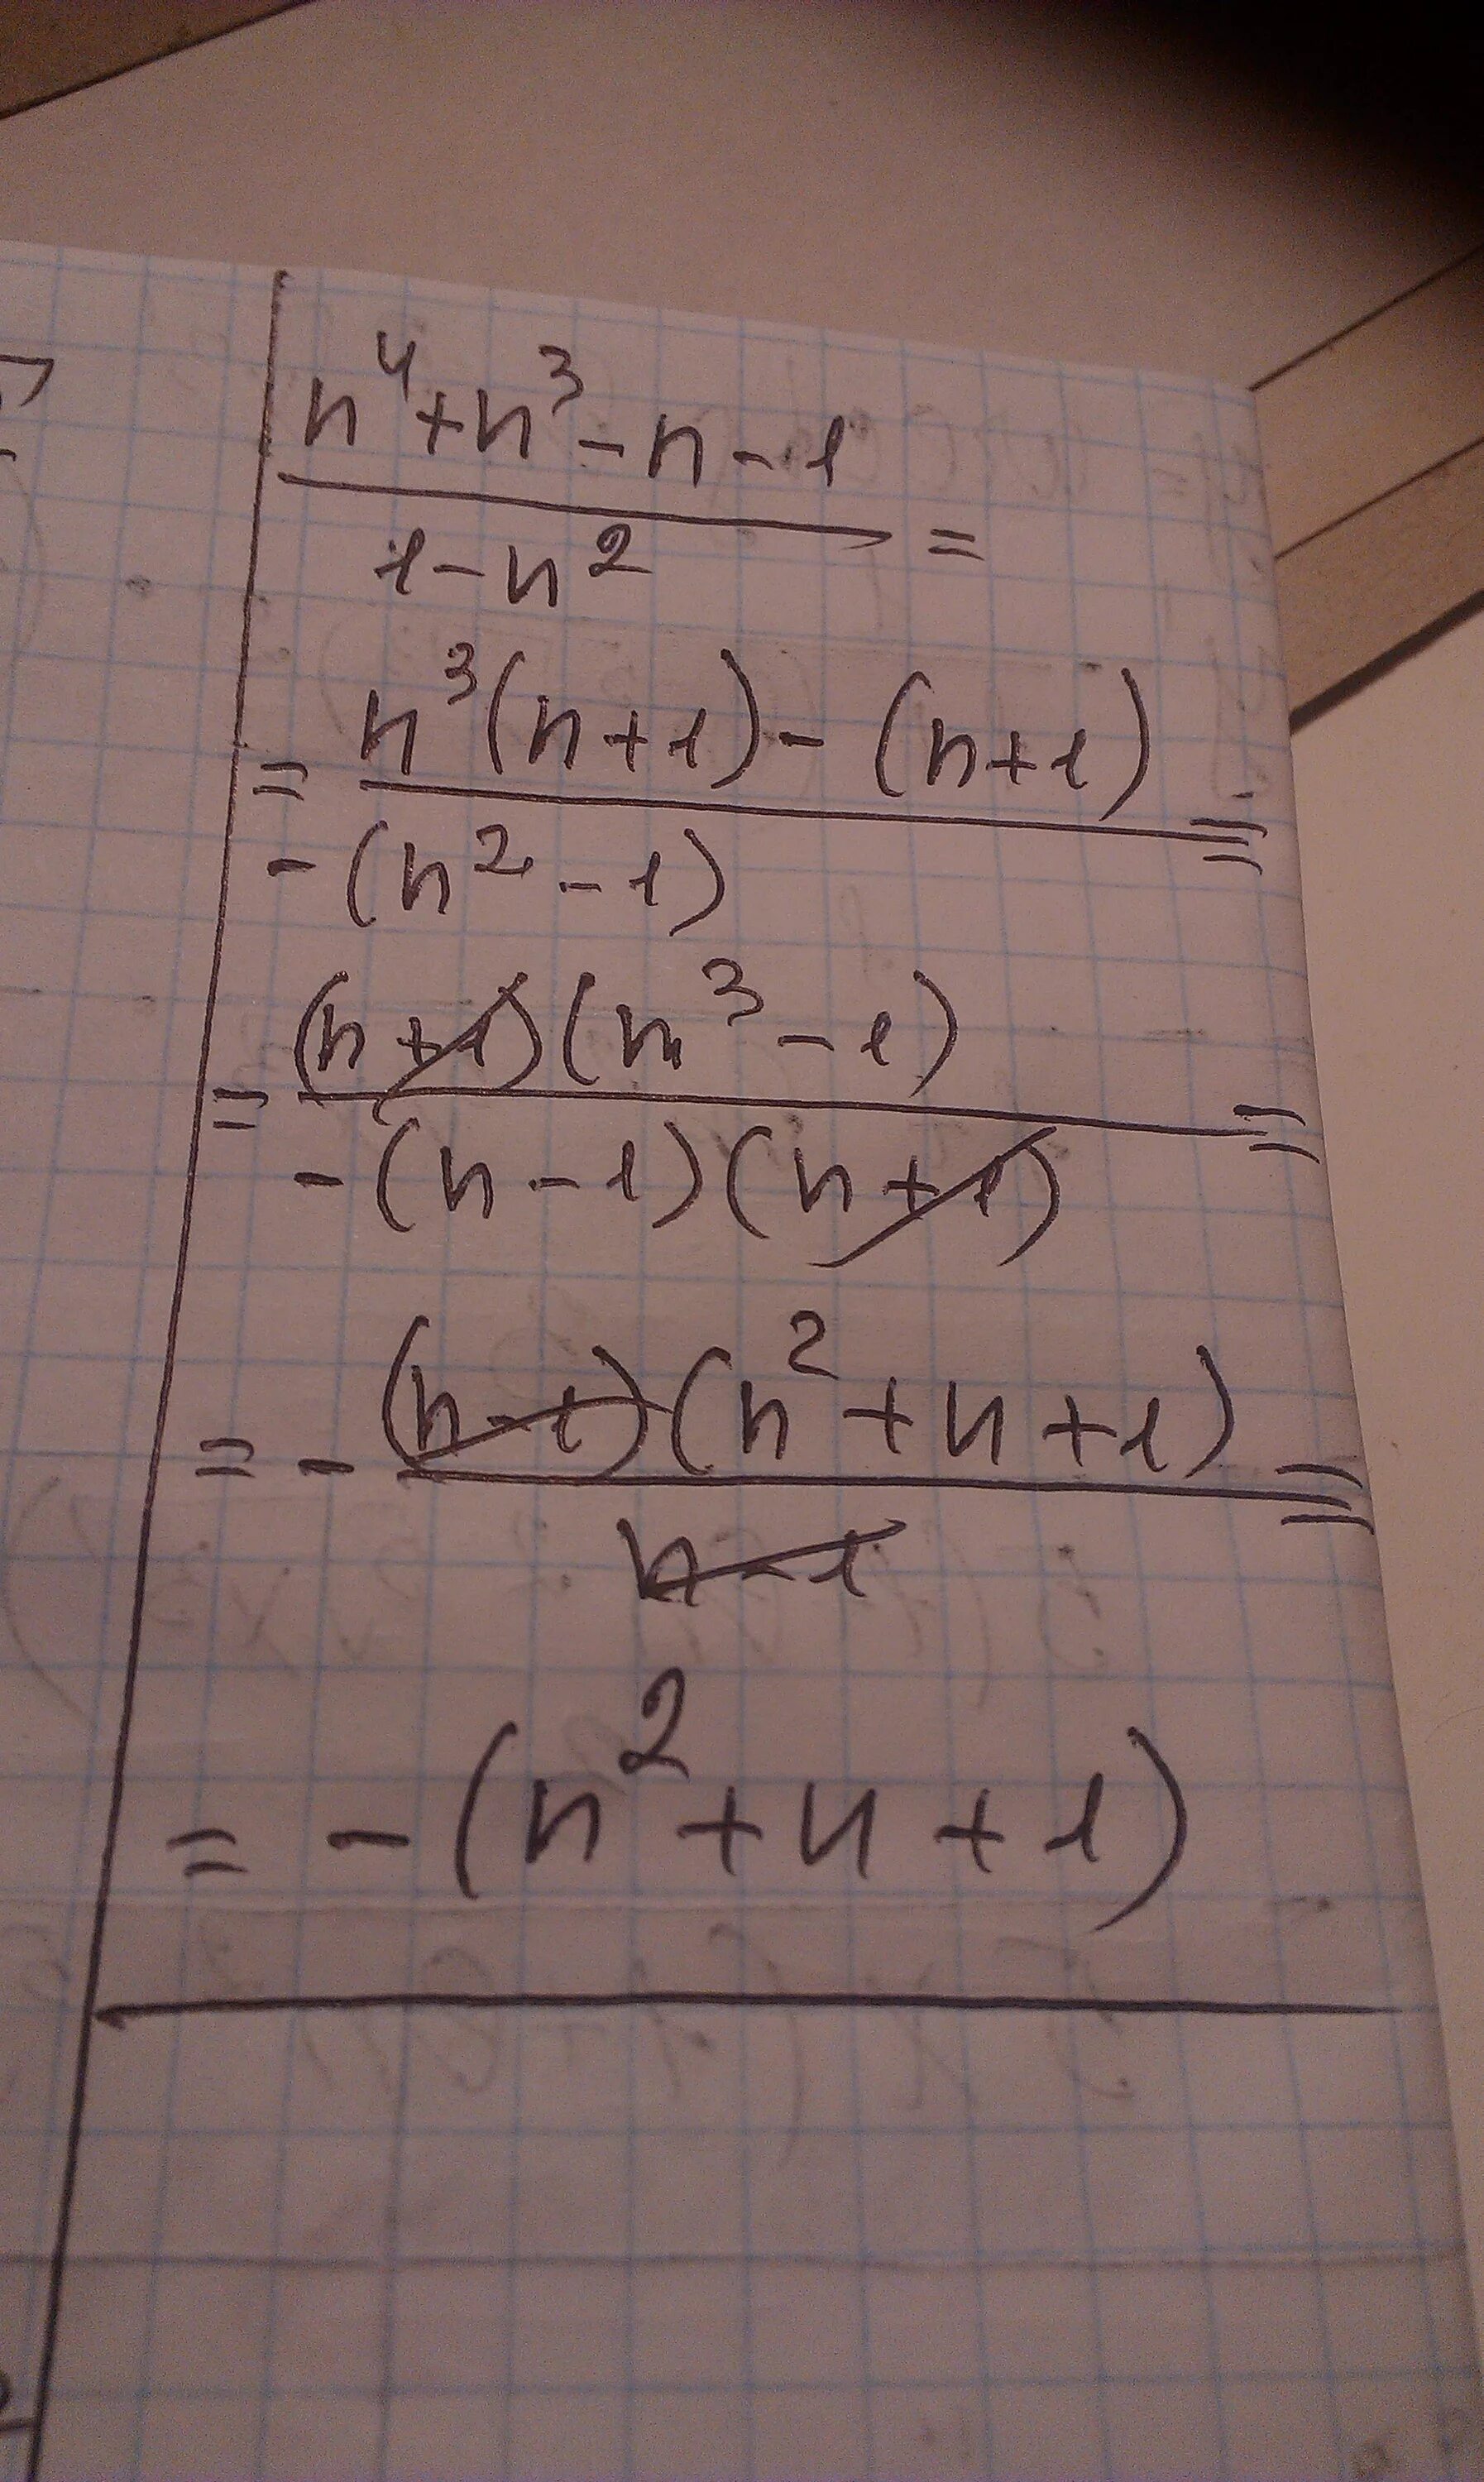 n⁴+n³-n-1
1-n² =
= n³(n+1)-(n+1) =
-(n²-1)
= (n+1)(n³-1) =
-(n-1)(n+1)
= - (n-1)(n²+n+1) =
n-1
= -(n²+n+1)